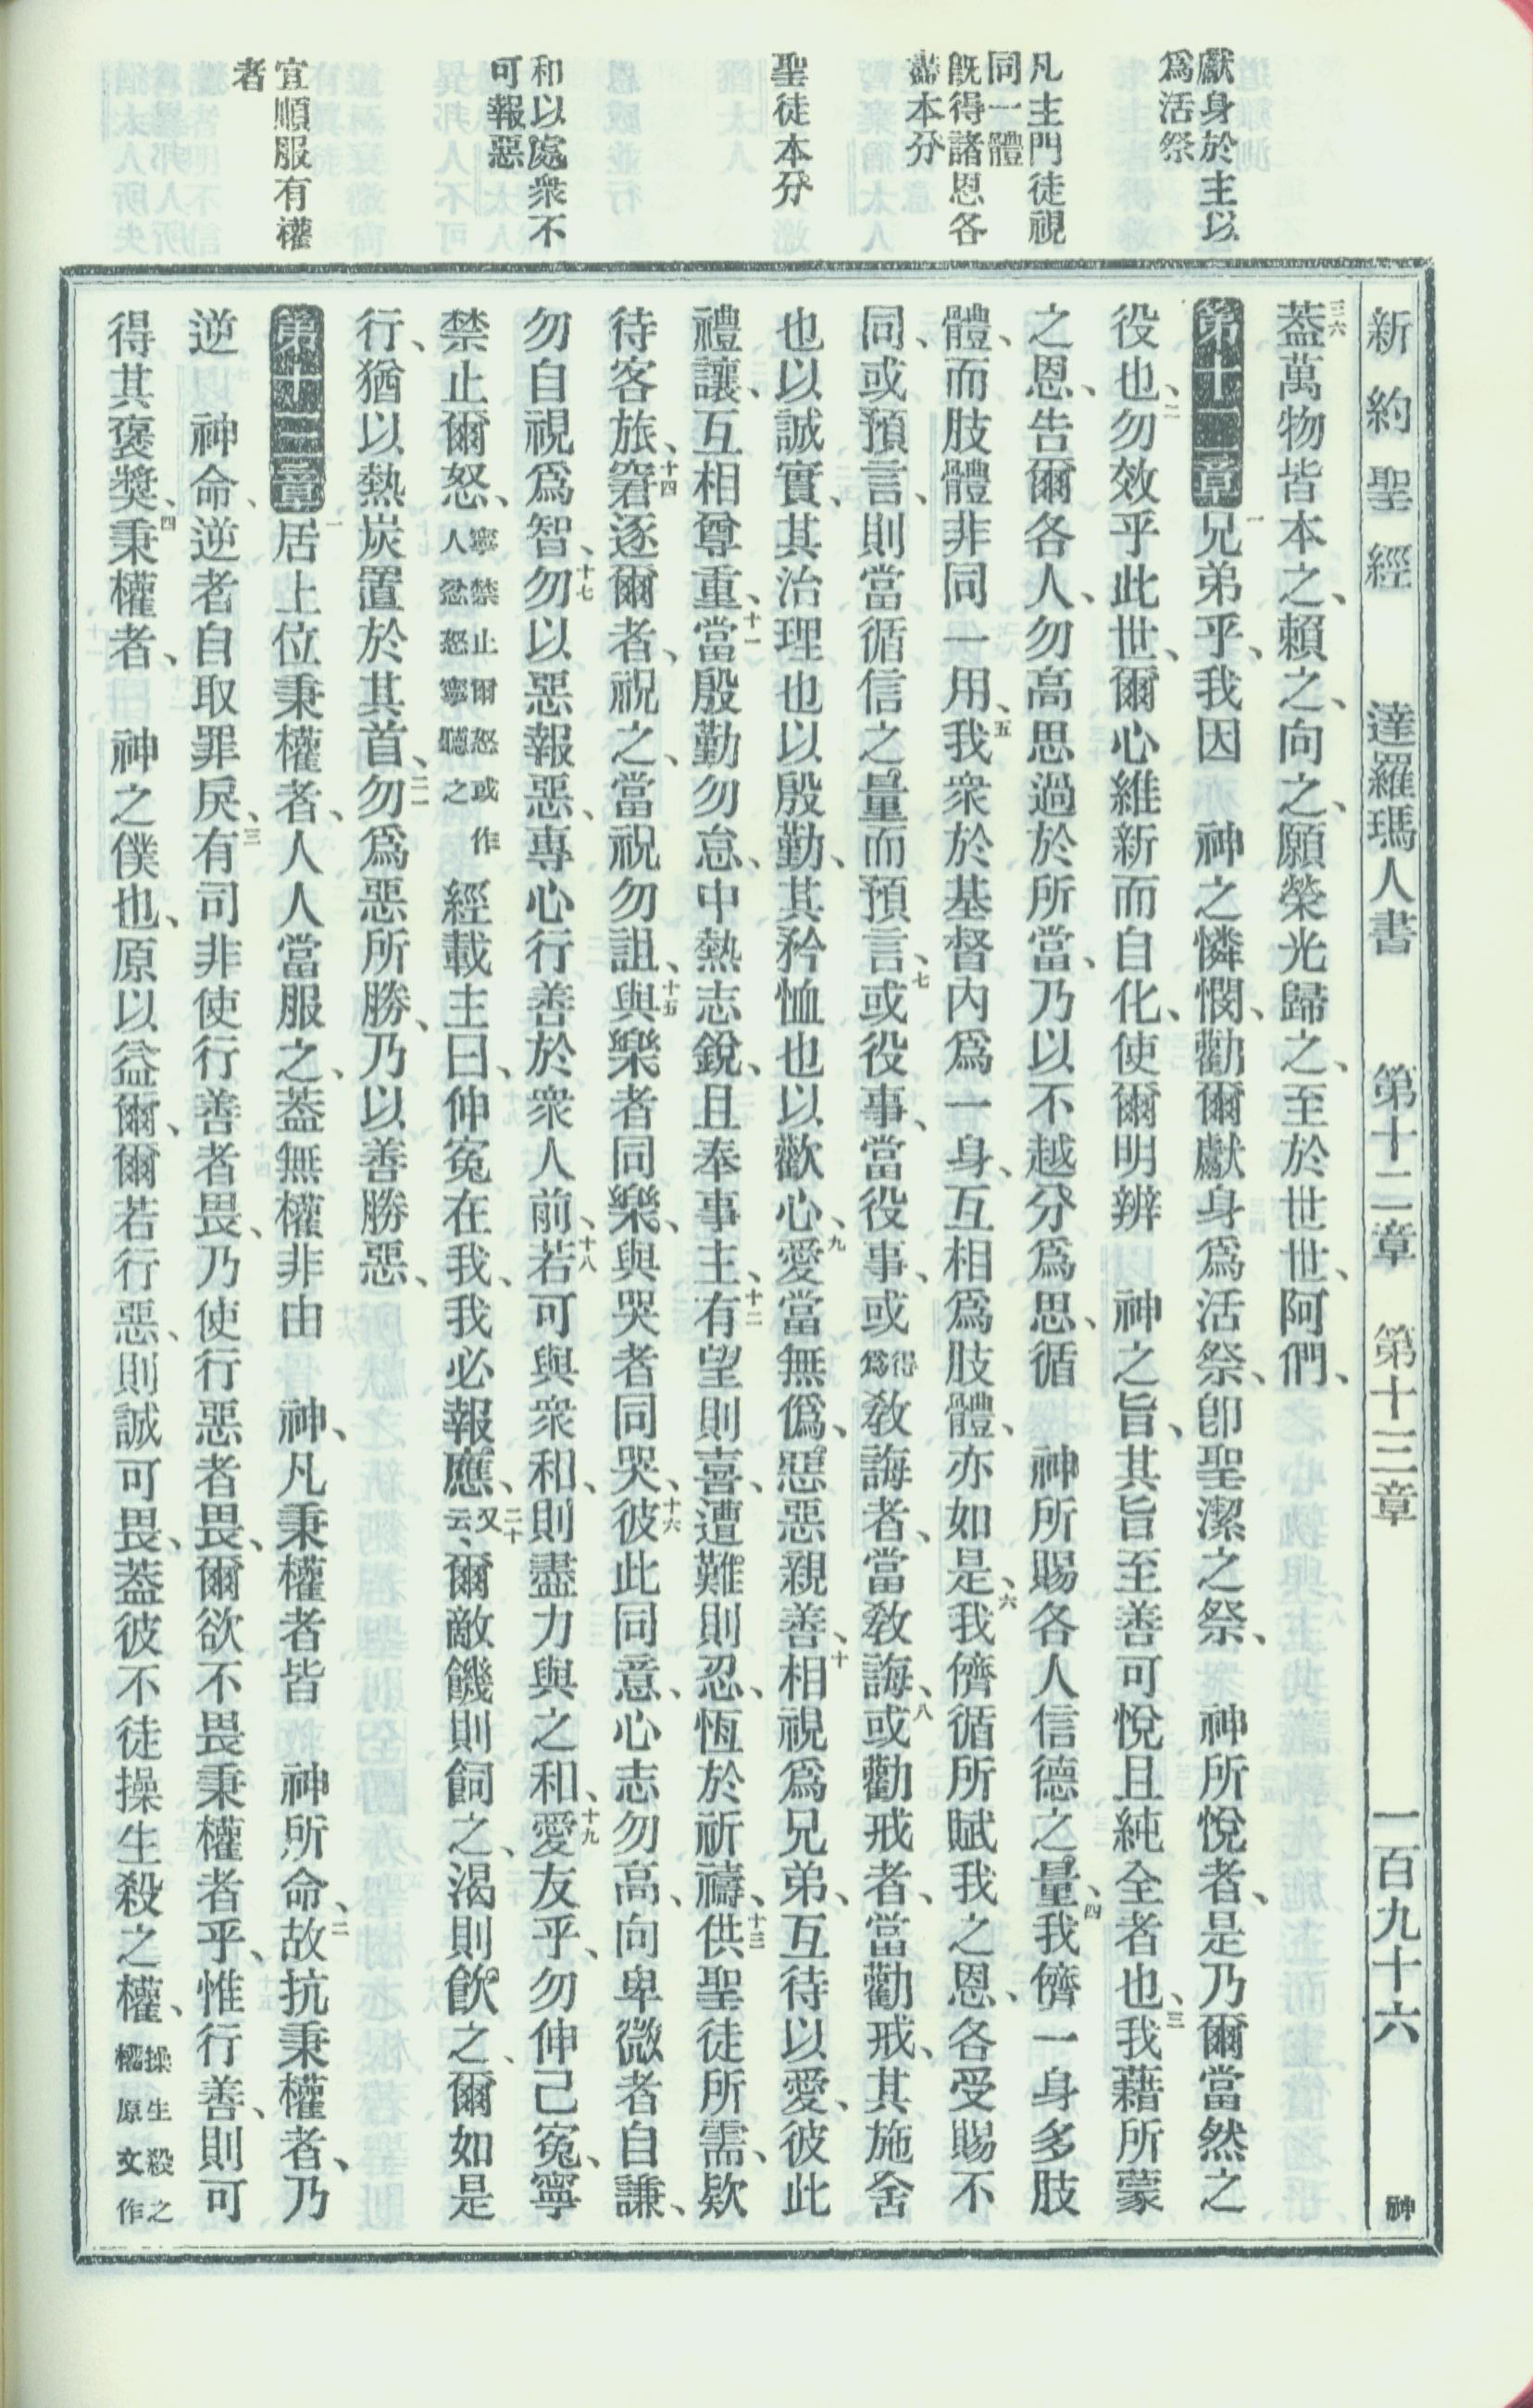 獻身於主以
爲活祭
凡主門徒視
同一體
既得諸恩各
盡本分
聖徒本分
和以處衆不
可報惡
宜順服有權
者
新約聖經 達羅瑪人書 第十二章 第十三章 一百九十六 神
三六蓋萬物皆本之、賴之、向之、願榮光歸之、至於世世、阿們、
第十二章一兄弟乎、我因 神之憐憫、勸爾獻身爲活祭、卽聖潔之祭、 神所悅者、是乃爾當然之
役也、二勿效乎此世、爾心維新而自化、使爾明辨 神之旨、其旨至善可悅且純全者也、三我藉所蒙
之恩、告爾各人、勿高思過於所當、乃以不越分爲思、循 神所賜各人信德之量、四我儕一身多肢
體、而肢體非同一用、五我衆於基督內爲一身、互相爲肢體、亦如是、六我儕循所賦我之恩、各受賜不
同、或預言、則當循信之量而預言、七或役事、當役事、或得爲敎誨者、當敎誨、八或勸戒者、當勸戒、其施舍
也以誠實、其治理也以殷勤、其矜恤也以歡心、九愛當無僞、惡惡親善、十相視爲兄弟、互待以愛、彼此
禮讓、互相尊重、十一當殷勤勿怠、中熱志銳、且奉事主、十二有望則喜、遭難則忍、恆於祈禱、十三供聖徒所需、欵
待客旅、十四窘逐爾者、祝之、當祝勿詛、十五與樂者同樂、與哭者同哭、十六彼此同意、心志勿高、向卑微者自謙、
勿自視爲智、十七勿以惡報惡、專心行善於衆人前、十八若可與衆和、則盡力與之和、十九愛友乎、勿伸己冤、寧
禁止爾怒、寧禁止爾怒或作人忿怒寧聽之 經載主曰、伸冤在我、我必報應、二十又云、爾敵饑則飼之、渴則飲之、爾如是
行、猶以熱炭置於其首、二一勿爲惡所勝、乃以善勝惡、
第十三章一居上位秉權者、人人當服之、蓋無權非由 神、凡秉權者皆 神所命、二故抗秉權者、乃
逆 神命、逆者自取罪戾、三有司非使行善者畏、乃使行惡者畏、爾欲不畏秉權者乎、惟行善、則可
得其褒獎、四秉權者、 神之僕也、原以益爾、爾若行惡、則誠可畏、蓋彼不徒操生殺之權、操生殺之權原文作